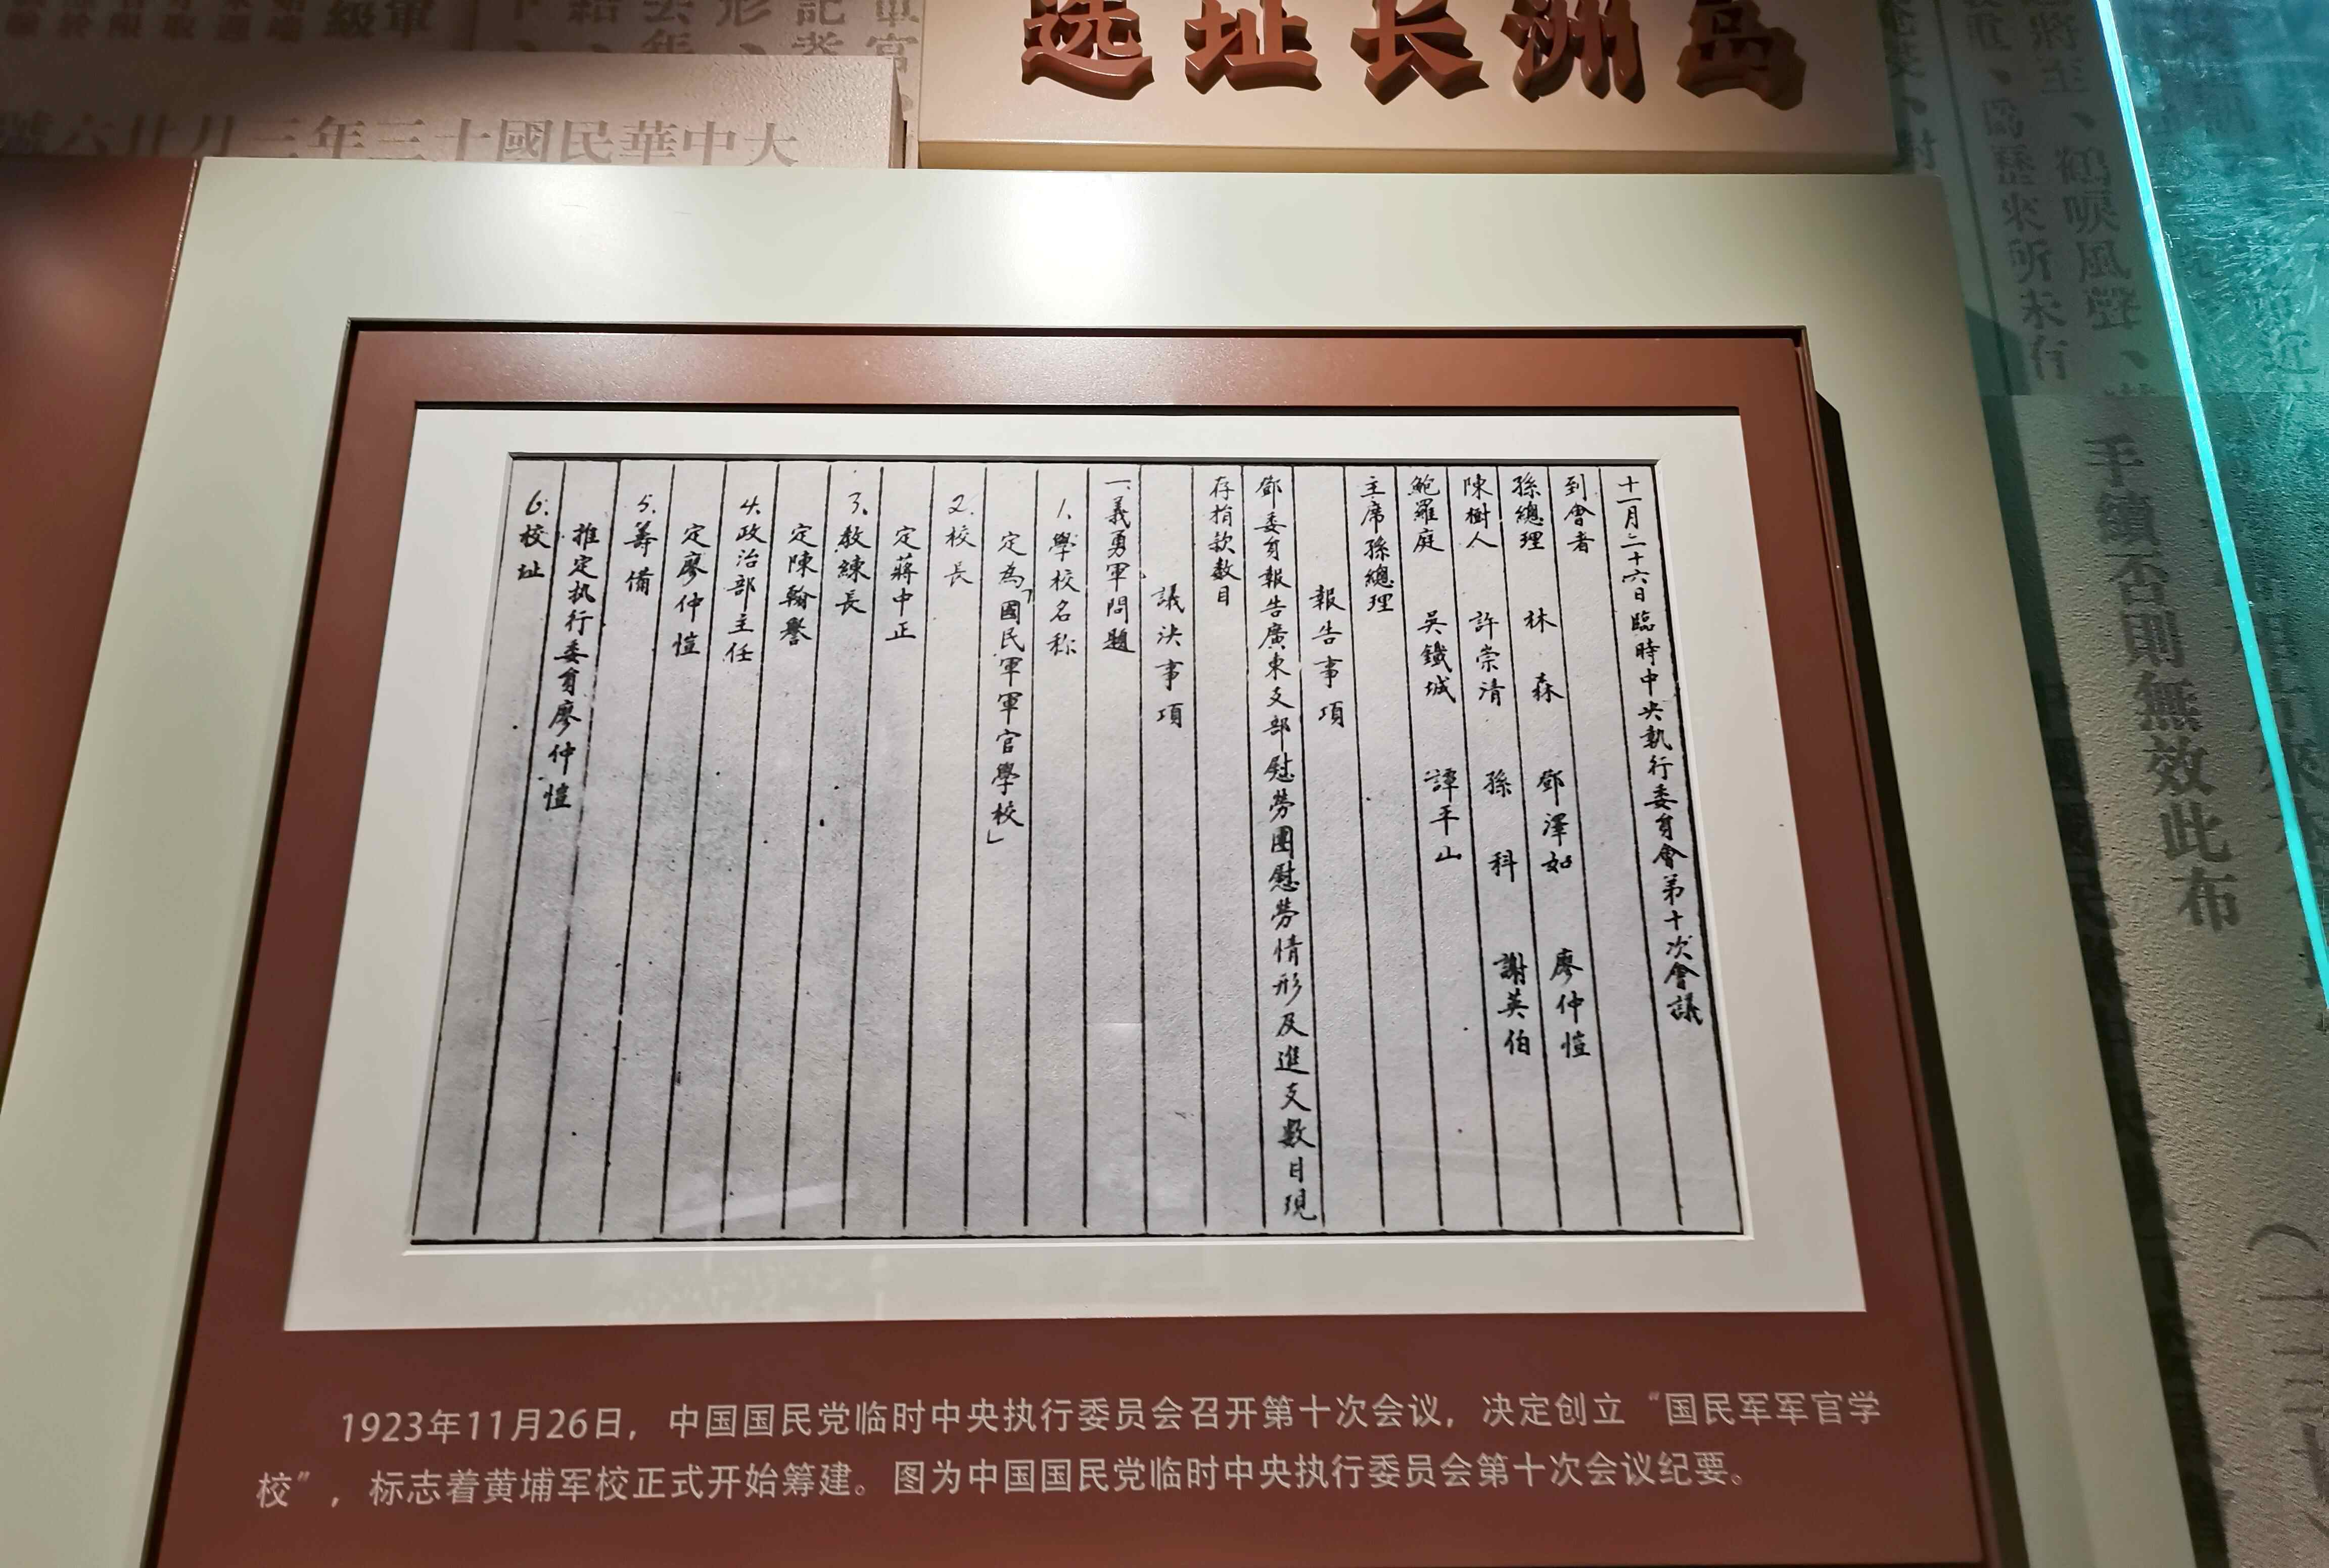 选址长洲岛
大中華民國十三年三月廿六號
手續否則無效此布
十一月二十六日臨時中央執行委員會第十次會議
到會者
孫總理 林森 鄧澤如 廖仲愷
陳樹人 許崇清 孫科 謝英伯
鮑羅庭 吳鐵城 譚平山
主席孫總理
報告事項
鄧委員報告廣東支部慰勞團慰勞情形及進支數目現
存捐款數目
議決事項
一、義勇軍問題
1、學校名称
定為「國民軍軍官學校」
2.校長
定蔣中正
3、教練長
定陳翰譽
4.政治部主任
定廖仲愷
5.籌備
推定执行委員廖仲愷
6.校址
1923年11月26日，中国国民党临时中央执行委员会召开第十次会议，决定创立“国民军军官学
校”，标志着黄埔军校正式开始筹建。图为中国国民党临时中央执行委员会第十次会议纪要。